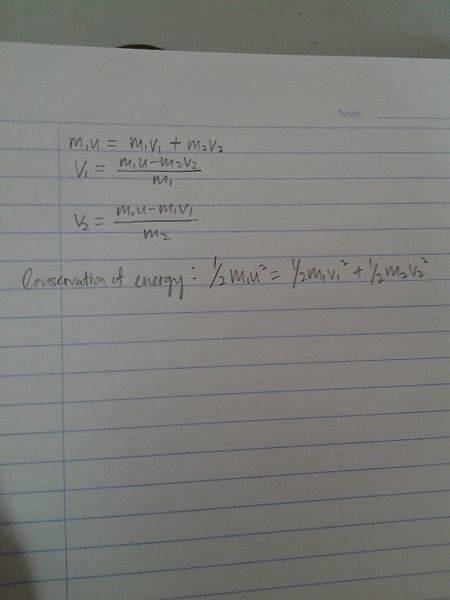 Tarikh
m₁u = m₁v₁ + m₂v₂
v₁ = (m₁u - m₂v₂)/m₁
v₂ = (m₁u - m₁v₁)/m₂
Conservation of energy : 1/2 m₁u² = 1/2 m₁v₁² + 1/2 m₂v₂²